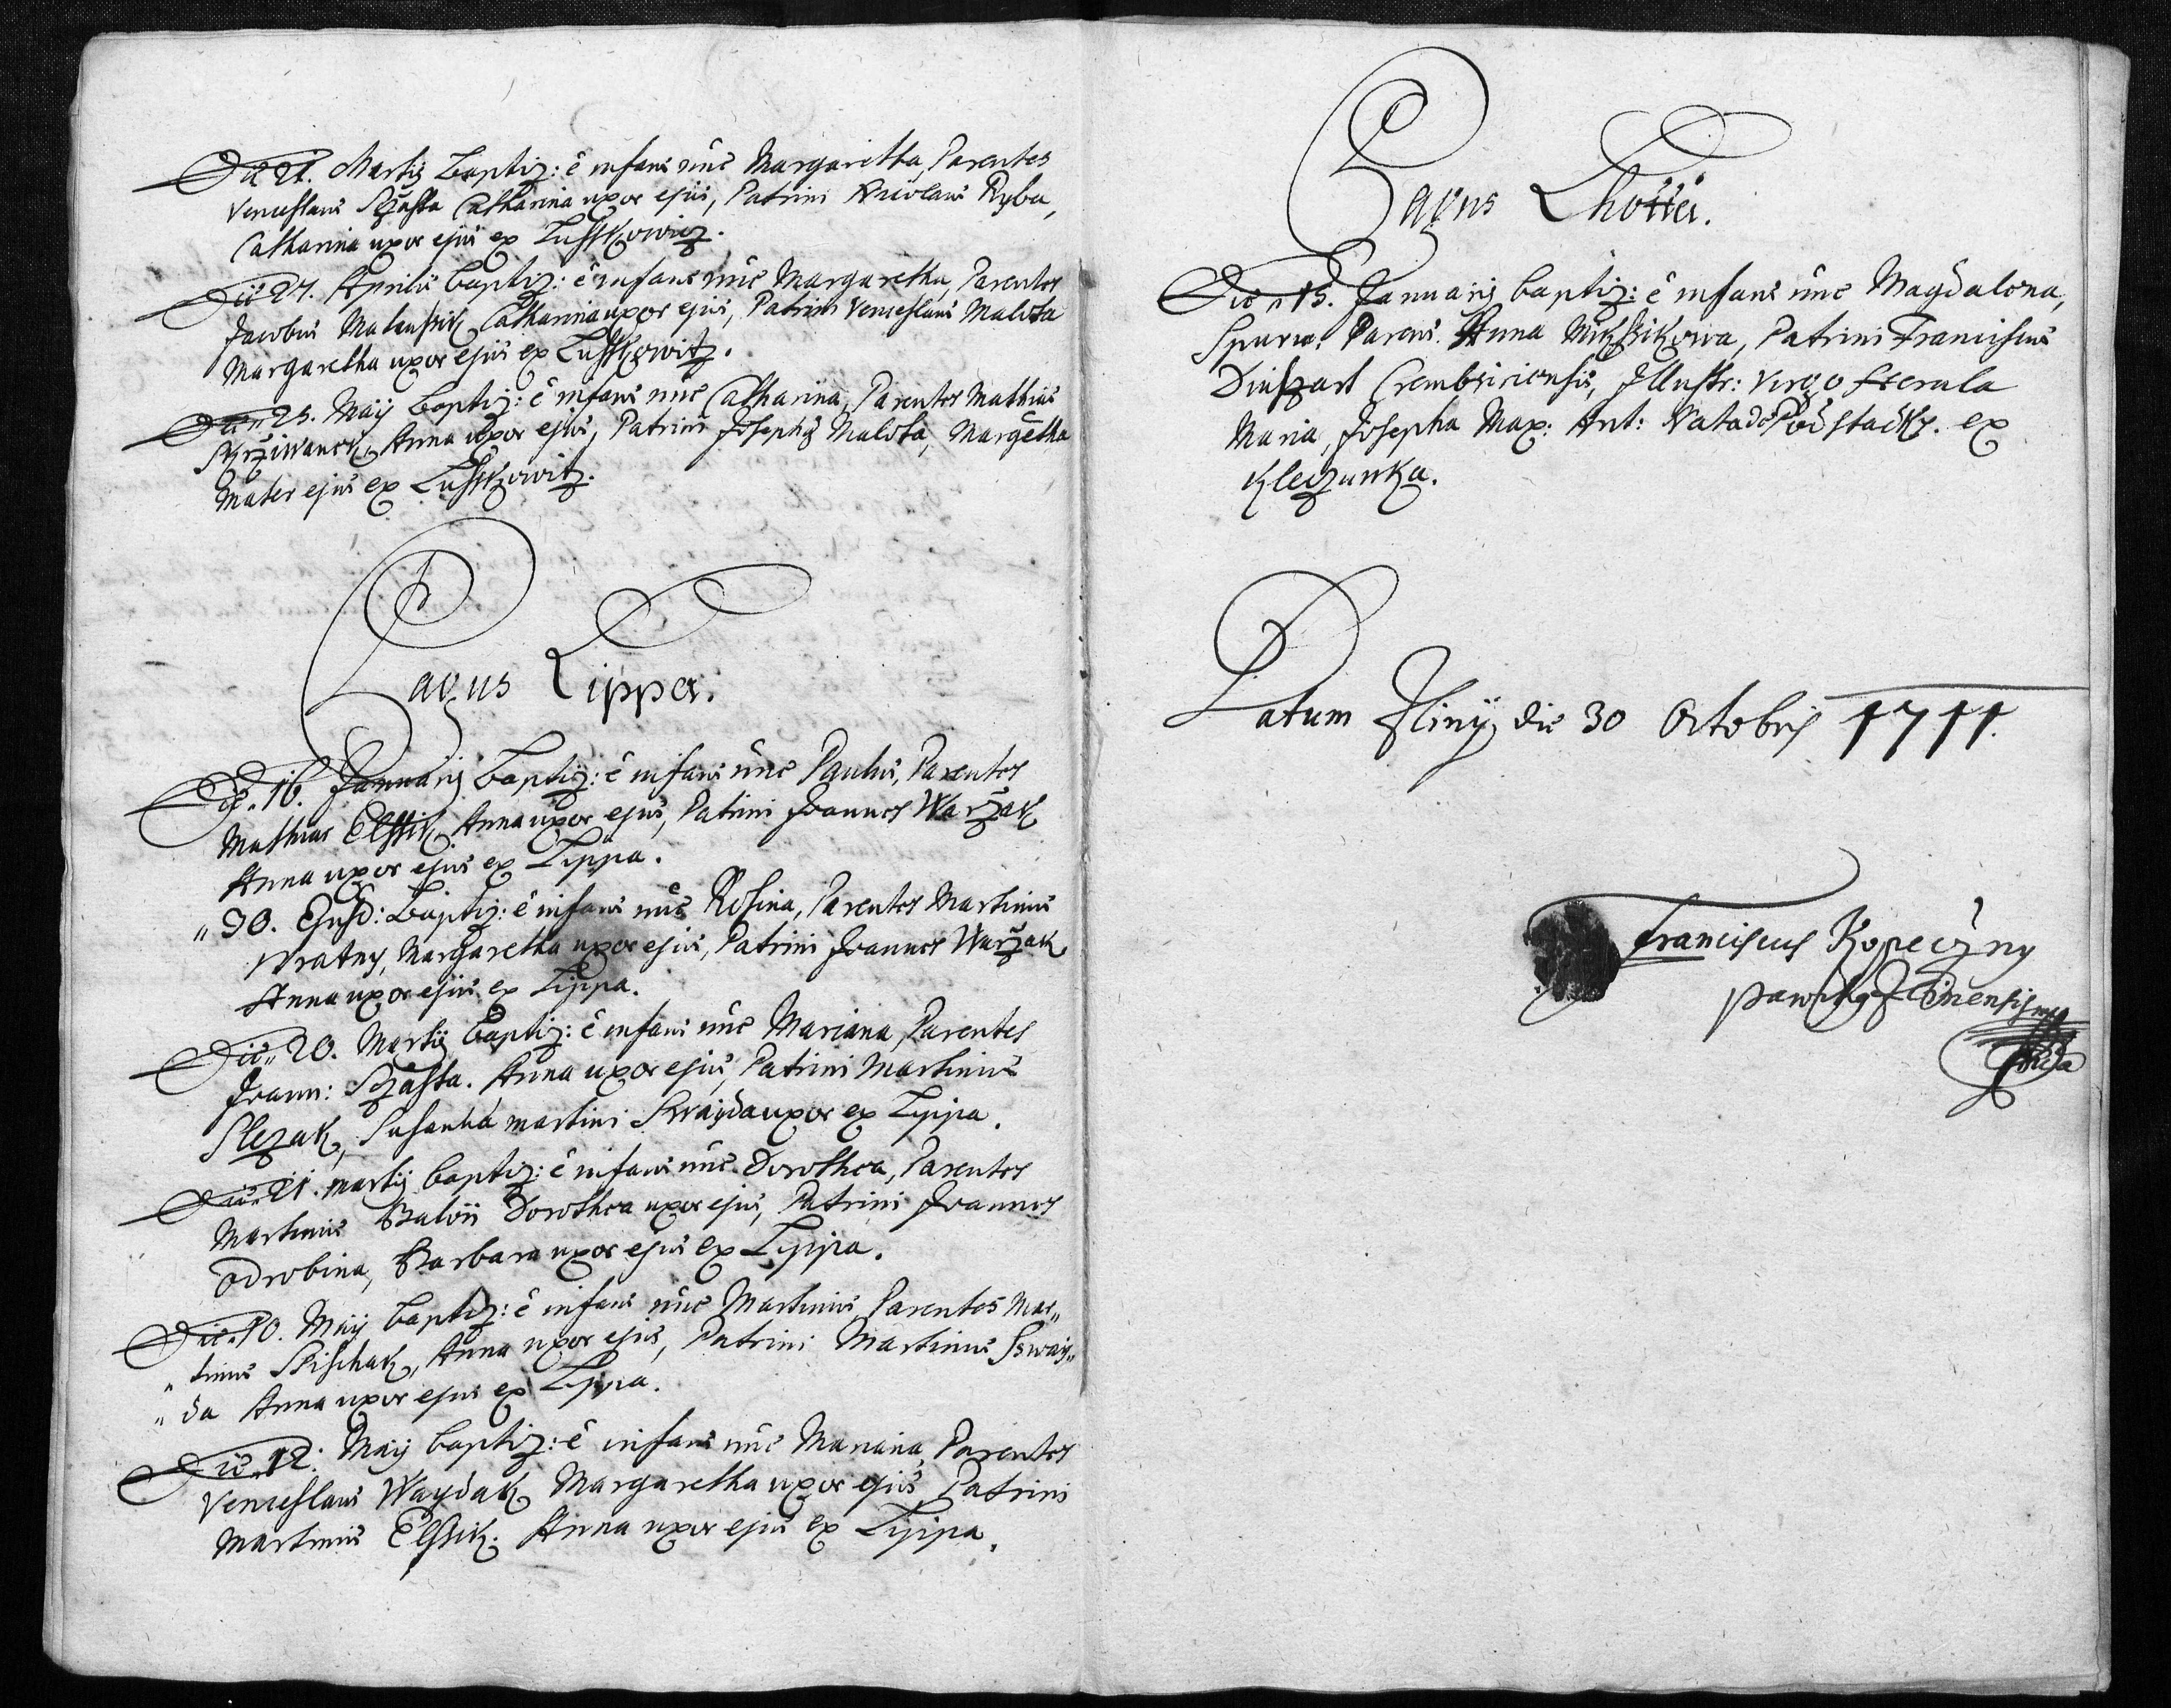 Die 21. Martij Baptiz: ê infans nñe Margaretha, Parentes
Venceslaus Sczasta Catharina uxor ejus, Patrini Nicolaus Ryba,
Catharina uxor ejus ex Lusskowicz.
Die 27. Aprilis baptiz: ê infans nñe Margaretha, Parentes
Jacobus Mataussik, Catharina uxor ejus, Patrini Venceslaus Malota
Margaretha uxor ejus ex Lusskowitz.
Die 25. Maij baptiz: ê infans nñe Catharina, Parentes Mathias
Skrziwanek, Anna uxor ejus, Patrini Josephus Malota, Margetha
Mater ejus ex Lusskowitz.
Pagus Lippa.
Die 16. Januarij baptiz: ê infans nñe Paulus, Parentes
Mathias Elssik Anna uxor ejus, Patrini Joannes Warzak
Anna uxor ejus ex Lippa.
" 30. Ejusd: baptiz: ê infans nñe Rosina, Parentes Martinus
Wratny, Margaretha uxor ejus, Patrini Joannes Warzak
Anna uxor ejus ex Lippa.
Die 20. Martij baptiz: ê infans nñe Mariana, Parentes
Joann: Sczasta. Anna uxor ejus, Patrini Martinus
Slezak, Susanna Martini Swayda uxor ex Lippa.
Die 21. Martij baptiz: ê infans nñe Dorothea, Parentes
Martinus Dorothea uxor ejus, Patrini Joannes
Odrobina, Barbara uxor ejus ex Lippa.
Die 10. Maij baptiz: ê infans nñe Martinus, Parentes Mar"
"tinus Spischak, Anna uxor ejus, Patrini Martinus Sway"
"da Anna uxor ejus ex Lippa.
Die 12. Maij baptiz: ê infans nñe Mariana, Parentes
Venceslaus Waydak Margaretha uxor ejus, Patrini
Martinus Elssik. Anna uxor ejus ex Lippa.
Pagus Lhotta.
Die 15. Januarij baptiz: ê infans nñe Magdalena,
Spuria. Parens. Anna Mikssikowa, Patrini Franciscus
Crembsiriensis, Illustr: Virgo
Maria, Josepha Max: Ant: Nata de Podstacky. ex
Kleczuwka.
Datum Zliny die 30 Octobris 1711.
Franciscus Kopeczny
Parochus Zlinensis mpa